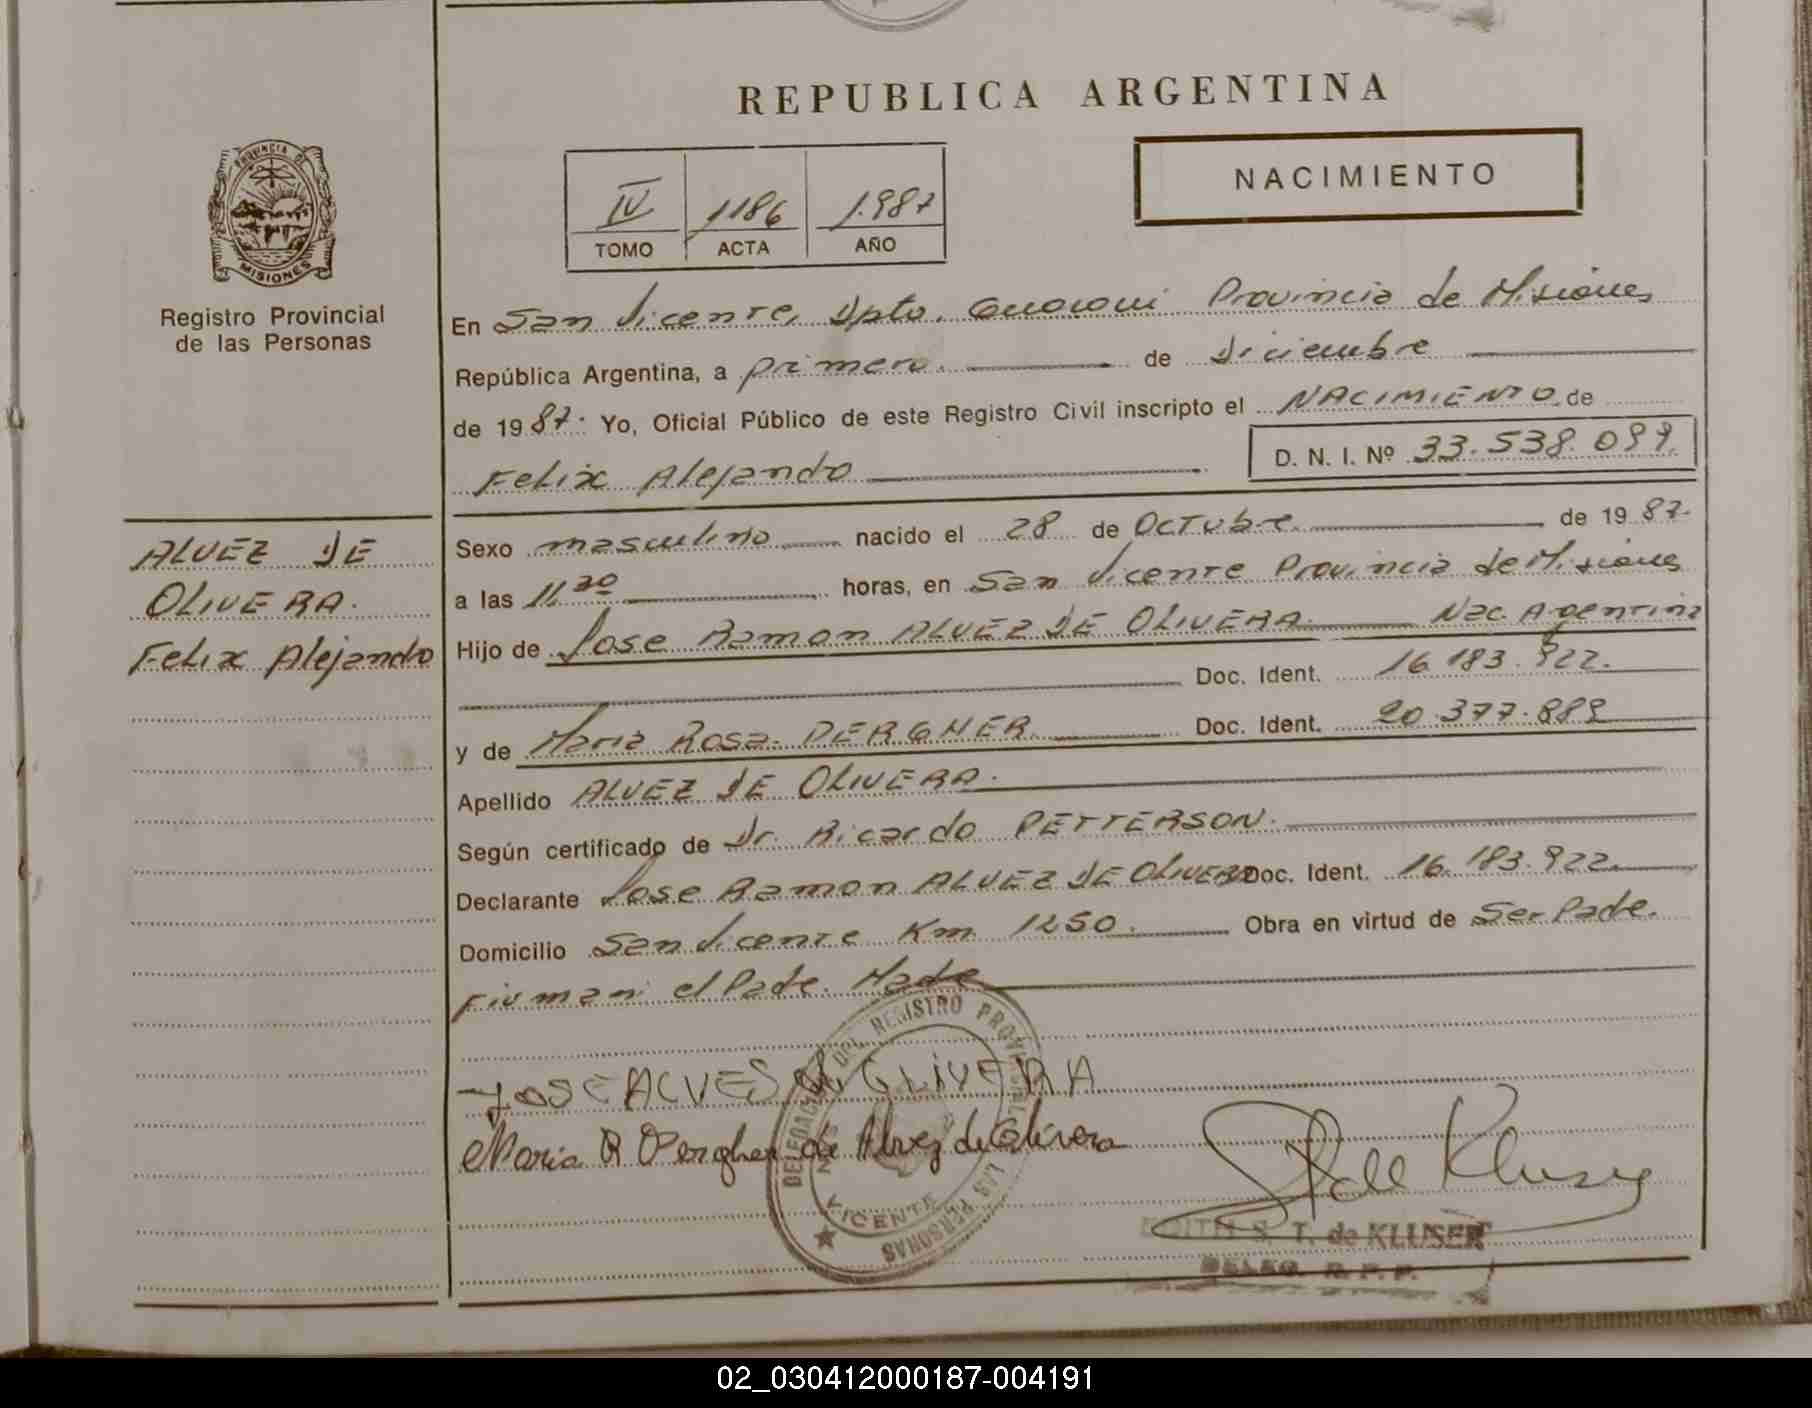 REPUBLICA ARGENTINA
PROVINCIA DE
MISIONES
Registro Provincial
de las Personas
NACIMIENTO
IV 1186 1.987
TOMO ACTA AÑO
En San Vicente, Dpto. Guarani Provincia de Misiones
República Argentina, a primero. de Diciembre
de 1987. Yo, Oficial Público de este Registro Civil inscripto el NACIMIENTO de
Felix Alejando
D. N. I. Nº 33.538.099.
ALVEZ DE
OLIVERA.
Felix Alejando
Sexo masculino nacido el 28 de Octubre. de 1987.
a las 11,30 horas, en San Vicente Provincia de Misiones
Hijo de Jose Ramon ALVEZ DE OLIVERA Nac. Argentina
Doc. Ident. 16.183.922.
y de Maria Rosa. PERGHER Doc. Ident. 20.377.889
Apellido ALVEZ DE OLIVERA.
Según certificado de Dr. Ricardo PETTERSON.
Declarante Jose Ramon ALVEZ DE OLIVERA Doc. Ident. 16.183.922.
Domicilio San Vicente Km 1250. Obra en virtud de Ser Padre.
Firman: el Padre. Madre
JOSE ALVES de OLIVERA
Maria R Pergher de Alvez de Olivera
DELEGACION DEL REGISTRO PROVINCIAL DE LAS PERSONAS
VICENTE
EDITH S. T. de KLUSER
DELEG. R. P. P.
02_030412000187-004191